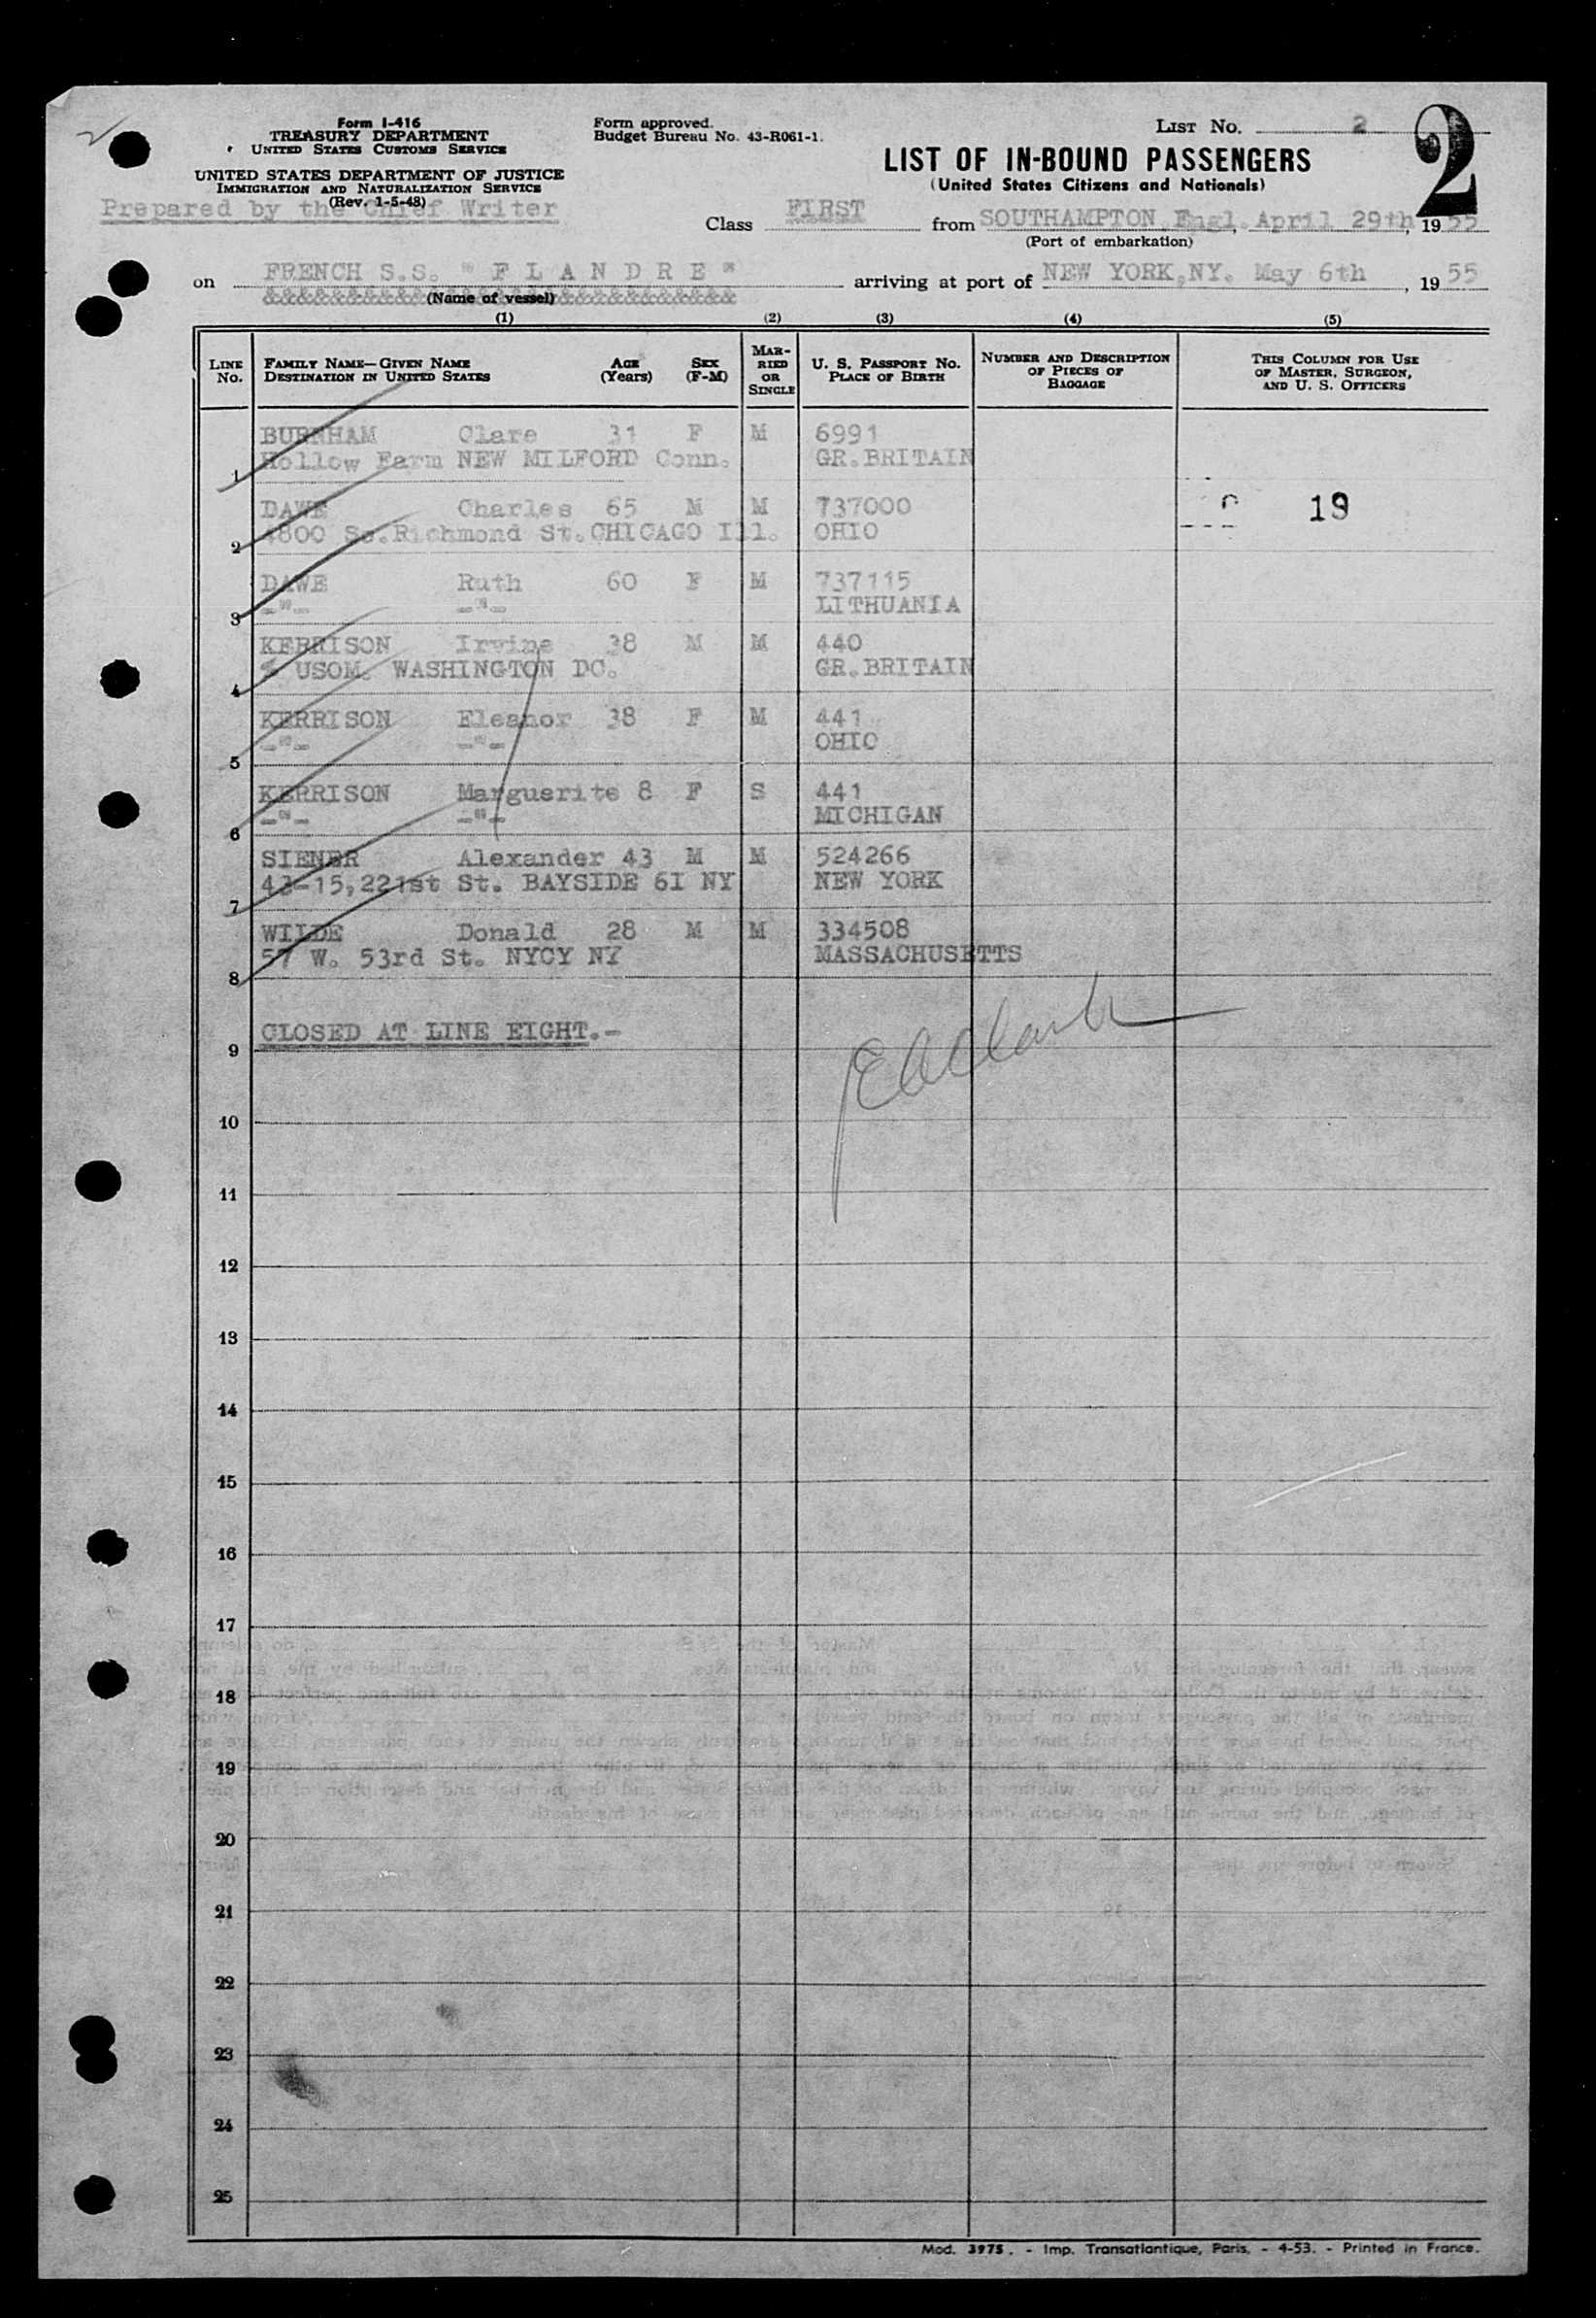 Form I-416
TREASURY DEPARTMENT
UNITED STATES CUSTOMS SERVICE
UNITED STATES DEPARTMENT OF JUSTICE
IMMIGRATION AND NATURALIZATION SERVICE
(Rev. 1-5-48)
Prepared by the Chief Writer
Form approved.
Budget Bureau No. 43-R061-1.
LIST NO. 2
2
LIST OF IN-BOUND PASSENGERS
(United States Citizens and Nationals)
Class FIRST from SOUTHAMPTON.Engl., April 29th, 1955
(Port of embarkation)
on FRENCH S.S. "F L A N D R E" arriving at port of NEW YORK,NY. May 6th, 1955
(Name of vessel)
(1) (2) (3) (4) (5)
LINE NO.
FAMILY NAME—GIVEN NAME
DESTINATION IN UNITED STATES
AGE (Years)
SEX (F-M)
MARRIED OR SINGLE
U. S. PASSPORT NO.
PLACE OF BIRTH
NUMBER AND DESCRIPTION OF PIECES OF BAGGAGE
THIS COLUMN FOR USE OF MASTER, SURGEON, AND U. S. OFFICERS
BURNHAM Clare 31 F M 6991
1 Hollow Farm NEW MILFORD Conn. GR.BRITAIN
DAWE Charles 65 M M 737000 19
2 4800 So.Richmond St.CHICAGO Ill. OHIO
DAWE Ruth 60 F M 737115
3 -"- -"- LITHUANIA
KERRISON Irvine 38 M M 440
4 % USOM. WASHINGTON DC. GR.BRITAIN
KERRISON Eleanor 38 F M 441
-"- -"- OHIO
5
KERRISON Marguerite 8 F S 441
-"- -"- MICHIGAN
6
SIENER Alexander 43 M M 524266
43-15,221st St. BAYSIDE 61 NY NEW YORK
7
WILDE Donald 28 M M 334508
57 W. 53rd St. NYCY NY MASSACHUSETTS
8
CLOSED AT LINE EIGHT.-
9
10
11
12
13
14
15
16
17
18
19
20
21
22
23
24
25
Mod. 3975. - Imp. Transatlantique, Paris. - 4-53. - Printed in France.